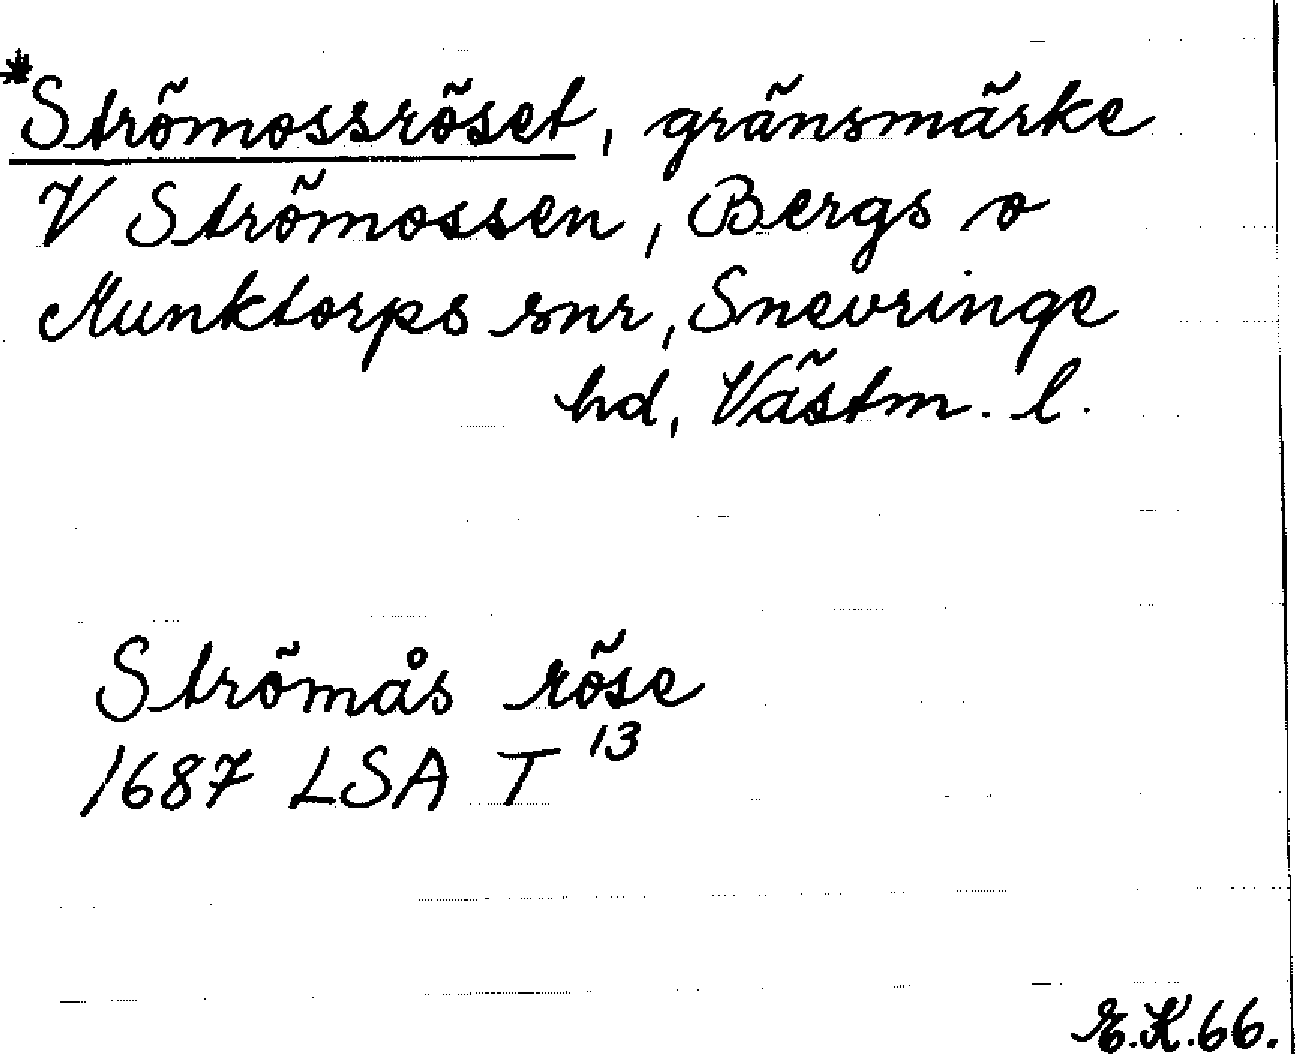 *Strömossröset, gränsmärke
V Strömossen, Bergs o
Munktorps snr, Snevringe
hd, Västm. l.
Strömås röse
1687 LSA T 13
E.K.66.